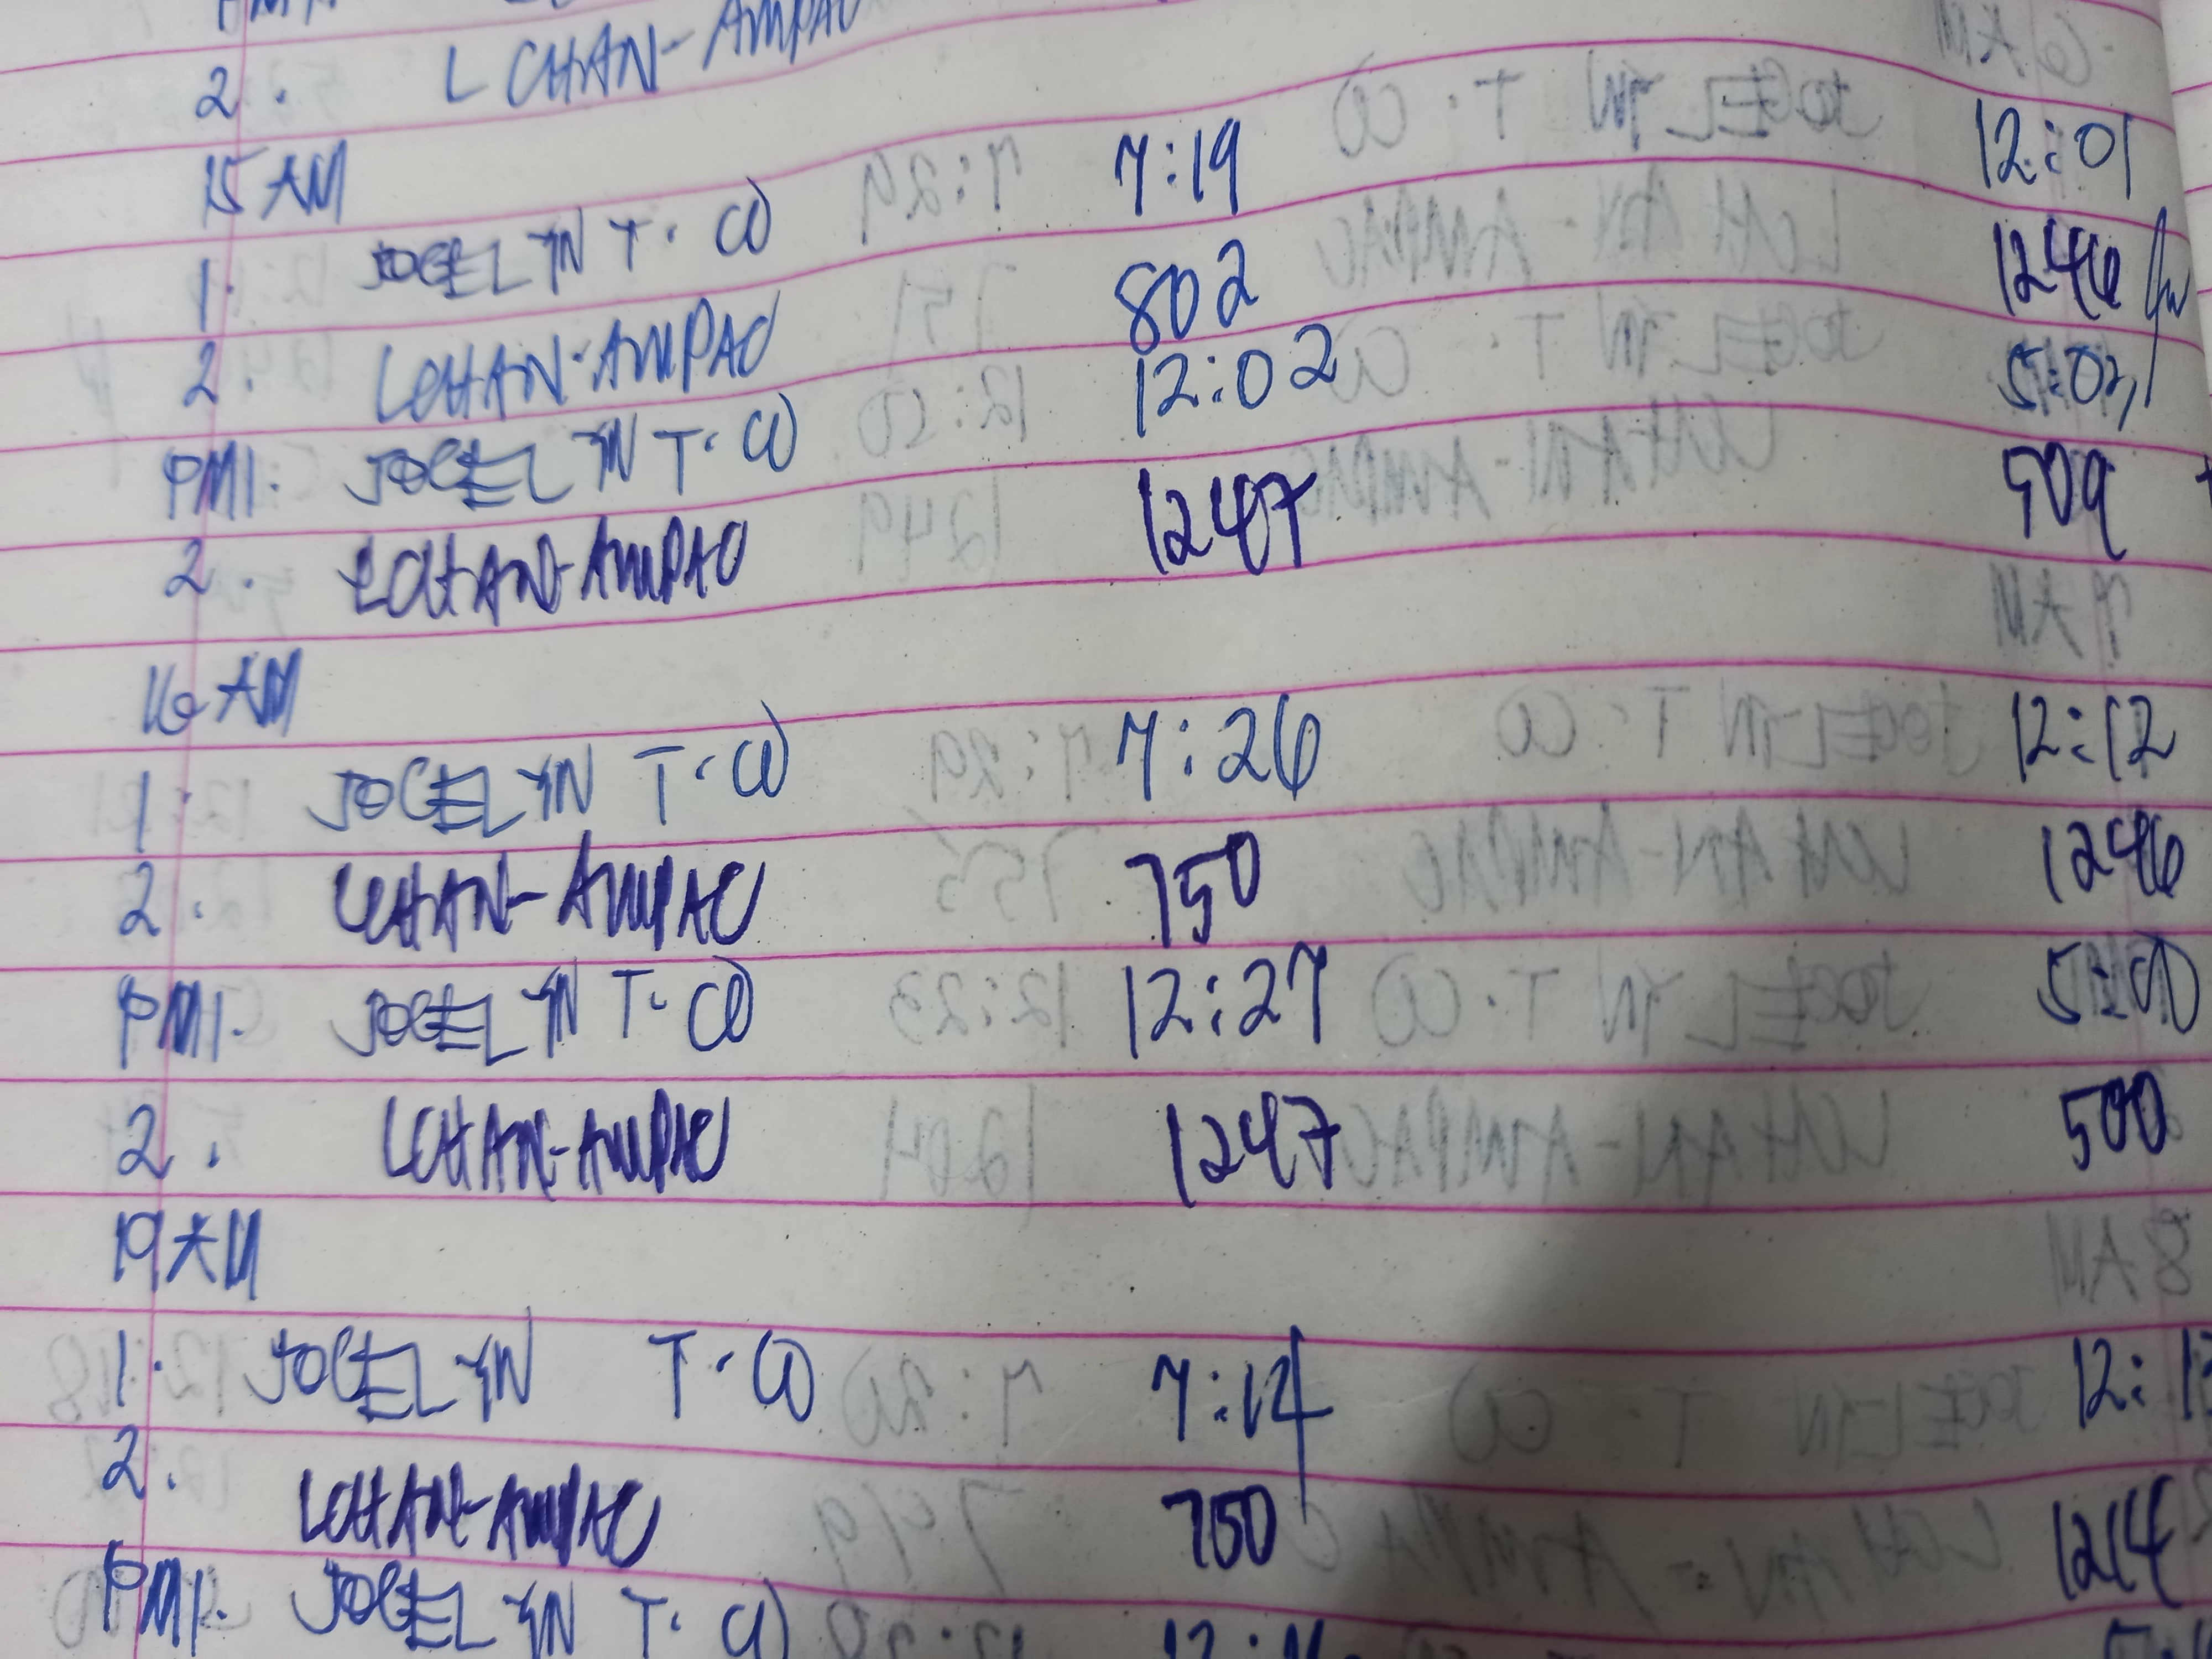 2. L CHAN-AMPAC
15 AM
1. JOCELYN T. CO 7:19 12:01
2. LCHAN-AMPAC 802 1246
PM1. JOCELYN T. CO 12:02 5:02
2. LCHAN-AMPAC 1247 509
16 AM
1. JOCELYN T. CO 7:26 12:12
2. LCHAN-AMPAC 750 1246
PM1. JOCELYN T. CO 12:27 5:00
2. LCHAN-AMPAC 1247 500
19 AM
1. JOCELYN T. CO 7:14 12:
2. LCHAN-AMPAC 750 1214
PM1. JOCELYN T. CO